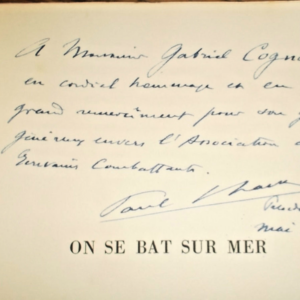 A Monsieur Gabriel Cogn
en cordial hommage et en
grand remerciement pour son
généreux envers l'Association
Écrivains Combattants.
Paul
mai
ON SE BAT SUR MER